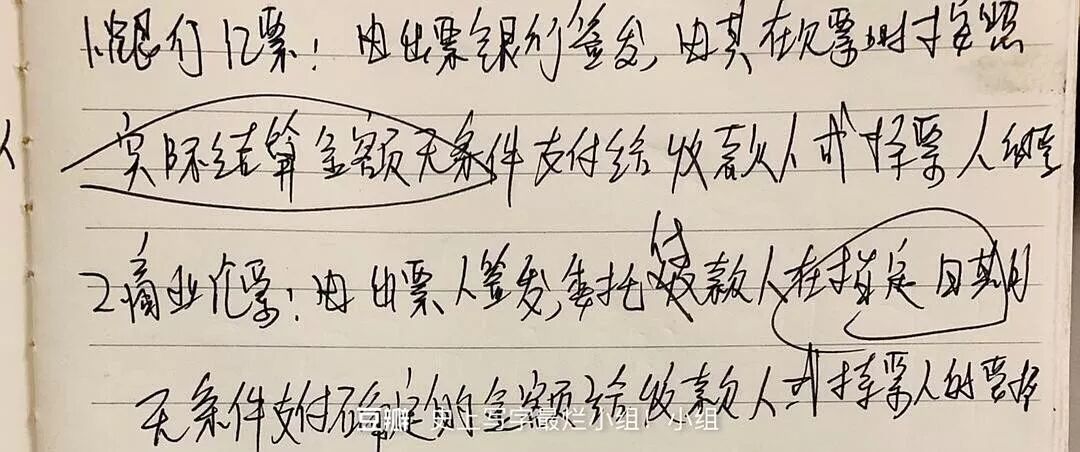 1.银行汇票：由出票银行签发，由其在见票时按照
实际结算金额无条件支付给收款人或持票人的票
2商业汇票：由出票人签发，委托付款人在指定日期
无条件支付确定的金额给收款人或持票人的票据
豆瓣 史上写字最烂小组 小组